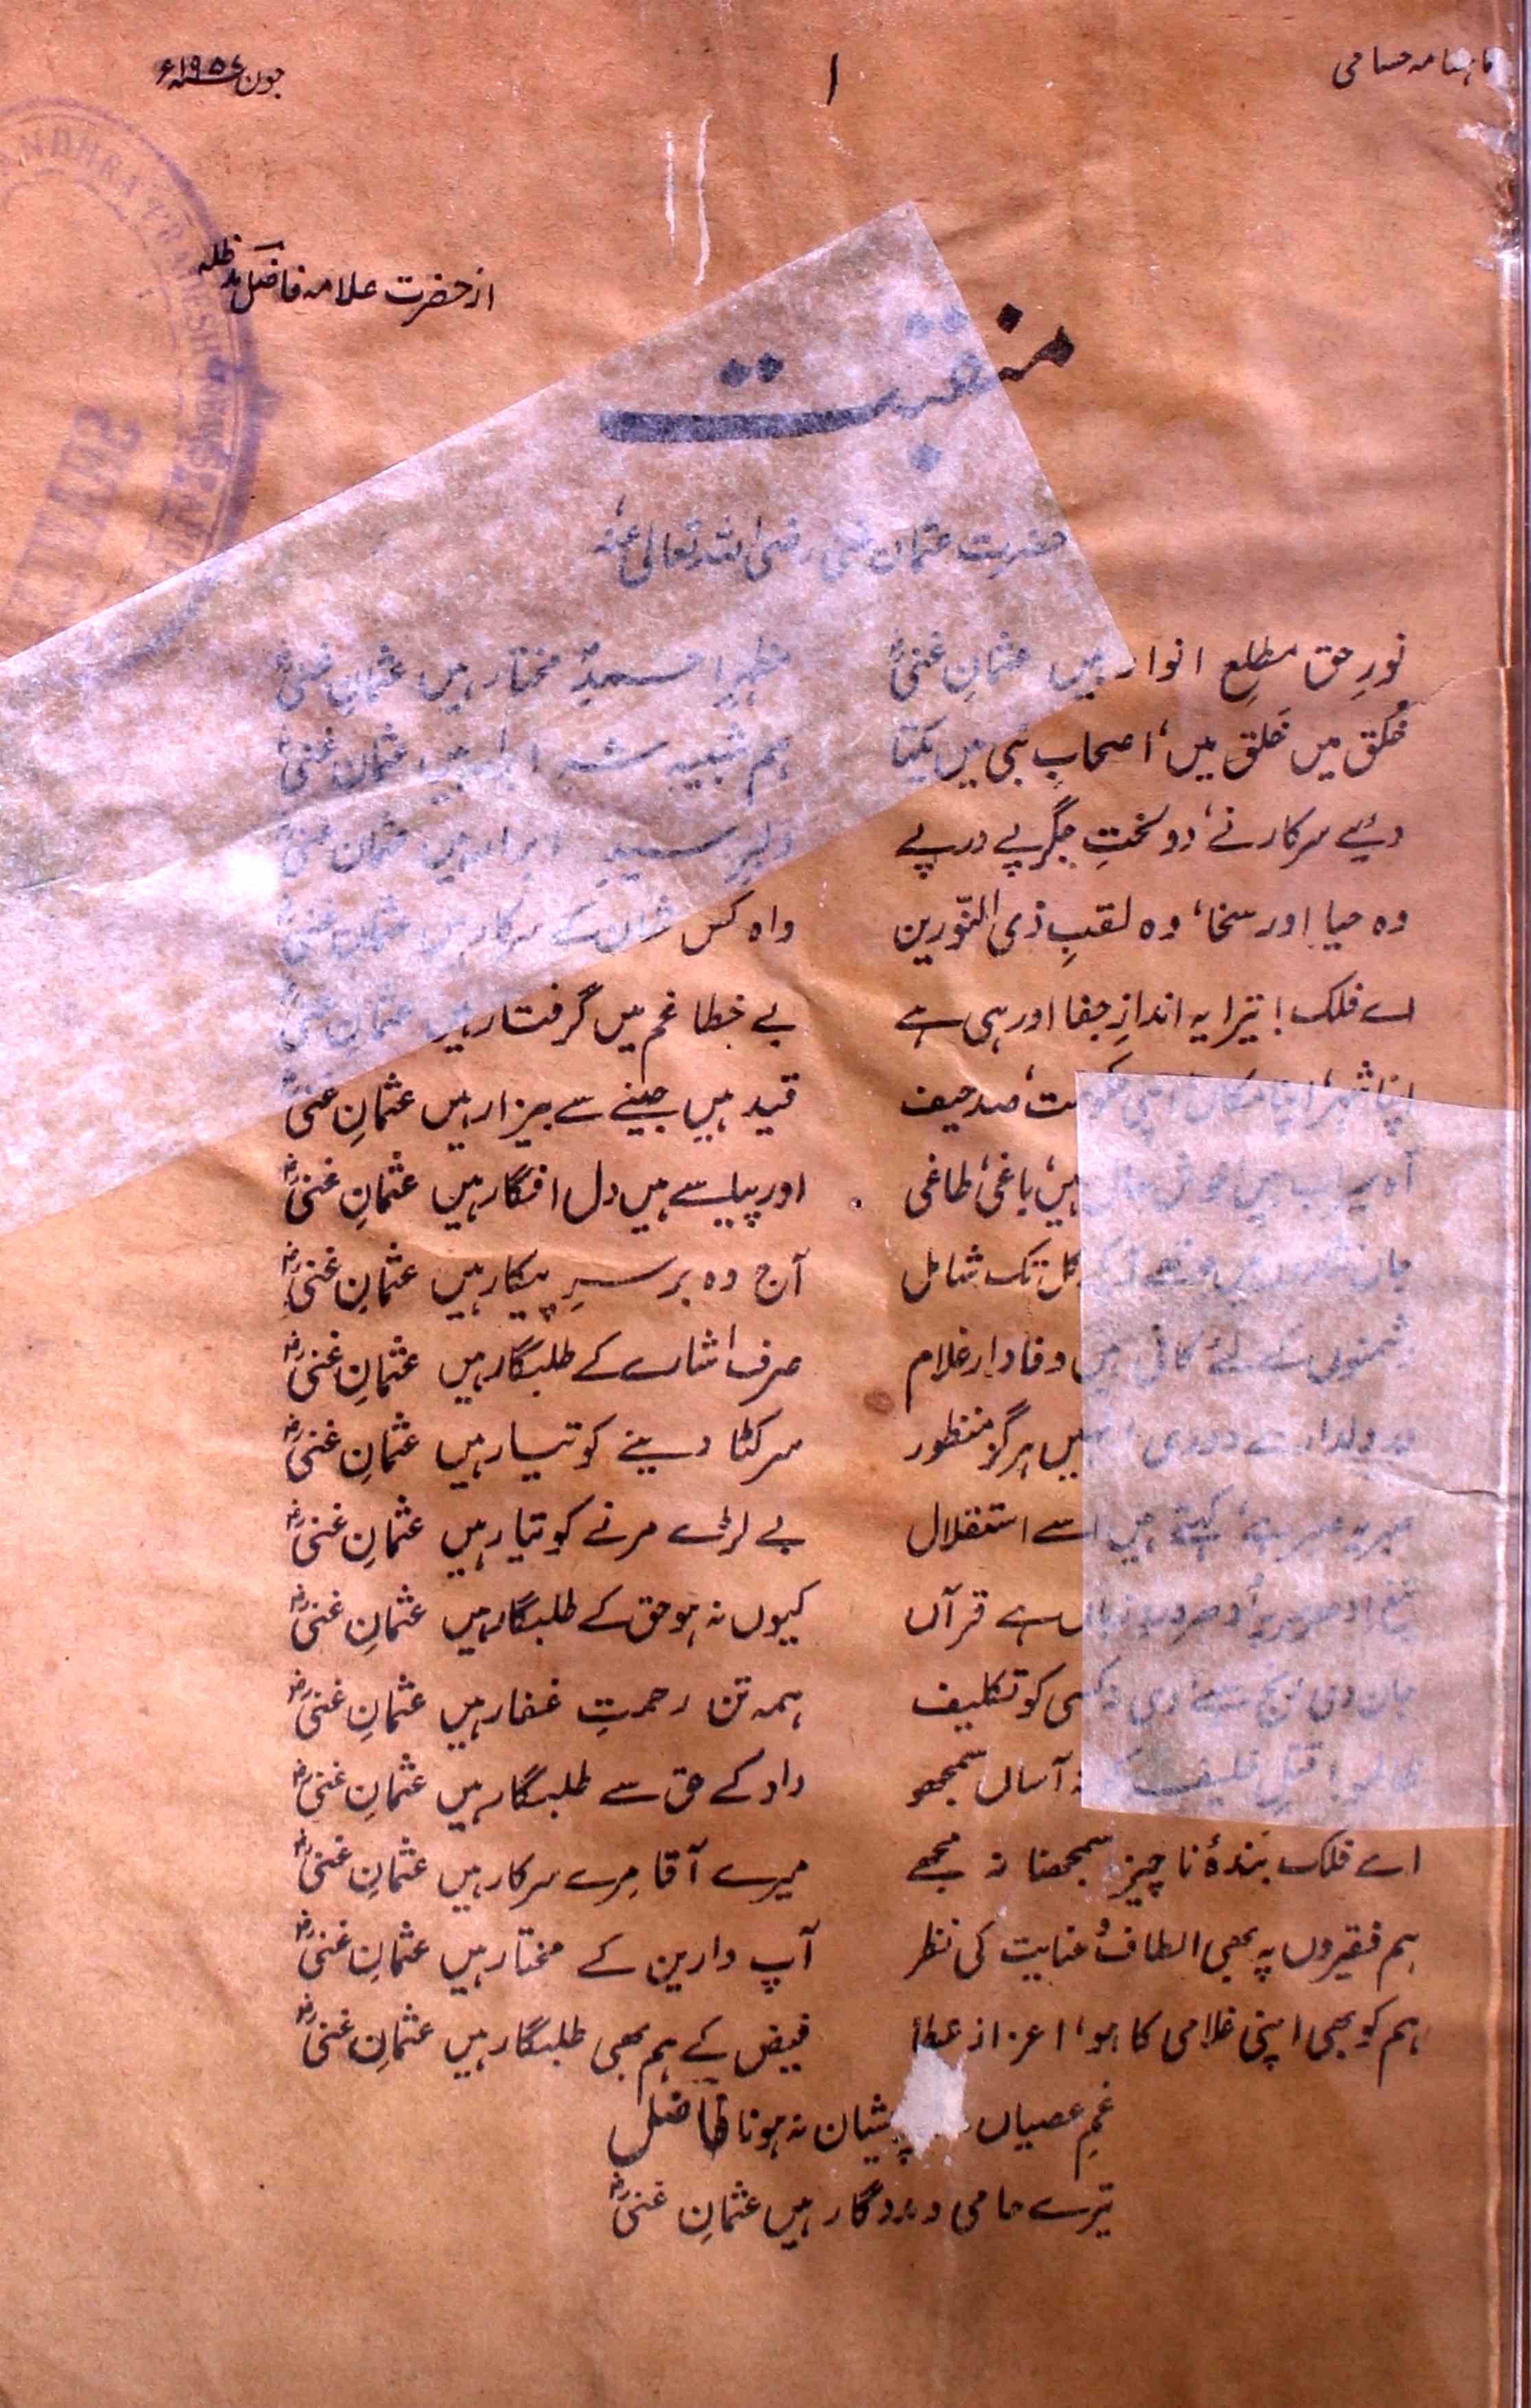 ماہنامہ حسامی
۱
جون ۱۹۵۷ء
از حضرت علامہ فاضل مدظلہ
منقبت
حضرت عثمان غنی رضی اللہ تعالیٰ عنہ
نورِ حق مطلعِ انوار ہیں عثمانِ غنیؓ مظہرِ احمدِ مختار ہیں عثمانِ غنیؓ
خُلق میں خَلق میں، اصحابِ نبی میں یکتا ہم شبیہ شہ ابرار ہیں عثمانِ غنیؓ
دیئے سرکار نے، دو لختِ جگر پے در پے سید ابرار ہیں عثمانِ غنیؓ
وہ حیا اور سخا، وہ لقبِ ذی النّورین واہ کس شان کے سرکار ہیں عثمانِ غنیؓ
اے فلک! تیرا یہ اندازِ جفا اور ہی ہے بے خطا غم میں گرفتار ہیں عثمانِ غنیؓ
اپنا شہر، اپنا مکاں، اپنی حکومت، صد حیف قید ہیں جینے سے بیزار ہیں عثمانِ غنیؓ
آہ سیراب ہیں ہیں، باغی، طاغی اور پیاسے ہیں دل افگار ہیں عثمانِ غنیؓ
جاں نثاروں میں کل تک شامل آج وہ بر سرِ پیکار ہیں عثمانِ غنیؓ
دشمنوں کے لئے کافی ہیں وفادار غلام صرف اشارے کے طلبگار ہیں عثمانِ غنیؓ
دلدار سے دوری نہیں ہرگز منظور سر کٹا دینے کو تیار ہیں عثمانِ غنیؓ
صبر یہ صبر ہے، کہتے ہیں اسے استقلال بے لڑے مرنے کو تیار ہیں عثمانِ غنیؓ
ہے قرآں کیوں نہ ہو حق کے طلبگار ہیں عثمانِ غنیؓ
جان دی کسی کو تکلیف ہمہ تن رحمتِ غفار ہیں عثمانِ غنیؓ
ظالمو! قتلِ خلیفہ کو نہ آساں سمجھو داد کے حق سے طلبگار ہیں عثمانِ غنیؓ
اے فلک بندۂ ناچیز سمجھنا نہ مجھے میرے آقا مِرے سرکار ہیں عثمانِ غنیؓ
ہم فقیروں پہ بھی الطاف و عنایت کی نظر آپ دارین کے مختار ہیں عثمانِ غنیؓ
ہم کو بھی اپنی غلامی کا ہو، اعزاز عطا فیض کے ہم بھی طلبگار ہیں عثمانِ غنیؓ
غمِ عصیاں پشیان نہ ہونا فاضل
تیرے حامی و مددگار ہیں عثمانِ غنیؓ
ANDHRA PRADESH